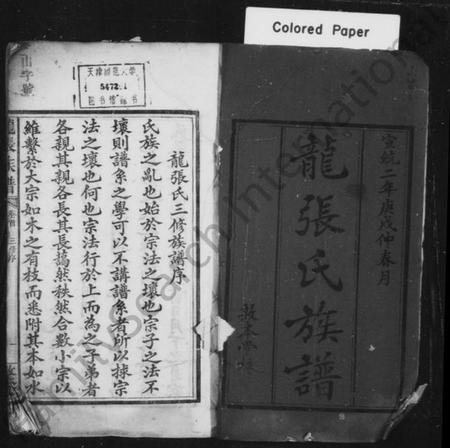 Colored Paper
宣統二年庚戌仲春月
龍張氏族譜
敦本堂
天津師范大学
54721
图书馆藏书
龍張氏三修族譜序
氏族之亂也始於宗法之壞也宗子之法不
壞則譜系之學可以不講譜系者所以捄宗
法之壞也何也宗法行於上而為之子弟者
各親其親各長其長藹然秩然合數小宗以
維繫於大宗如木之有枝而悉附其本如水
龍張族譜
FamilySearch International